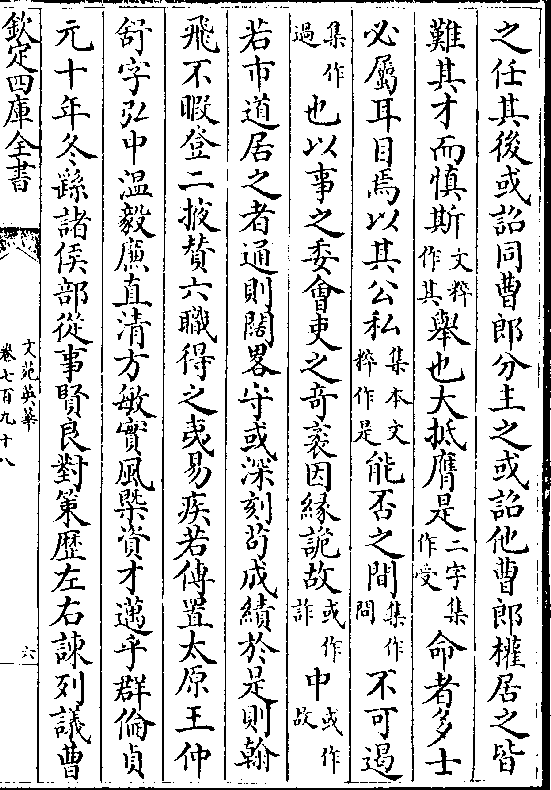 之任其後或詔同曹郎分主之或詔他曹郎權居之皆
難其才而慎斯文粹作其舉也大抵膺是二字集作受命者多士
必屬耳目焉以其公私集本文粹作是能否之間集作問不可遏
集作過也以事之委會吏之奇袤因緣詭故或作詐中或作故
若市道居之者通則闊畧守或深刻苟成績於是則翰
飛不暇登二掖贊六職得之夷易疾若傳置太原王仲
舒字弘中溫毅廉直清方敏實風槩資才邁乎群倫貞
元十年冬繇諸侯部從事賢良對策歷左右諫列議曹
欽定四庫全書
文苑英華
卷七百九十八
六